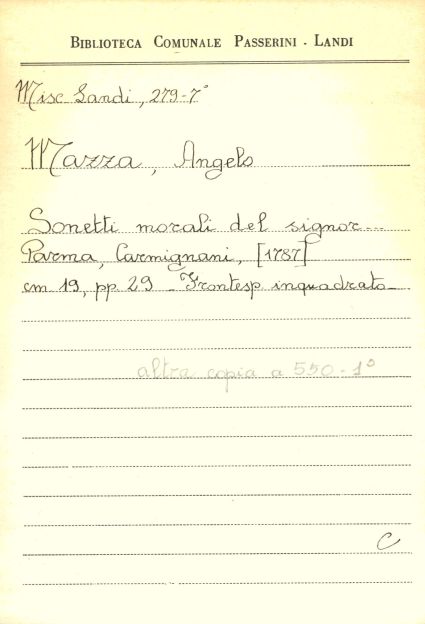 BIBLIOTECA COMUNALE PASSERINI - LANDI
Misc Landi, 279-7°
Mazza, Angelo
Sonetti morali del signor...
Parma, Carmignani, [1787]
cm 19, pp. 29 - Frontesp inquadrato -
altra copia a 550-1°
C